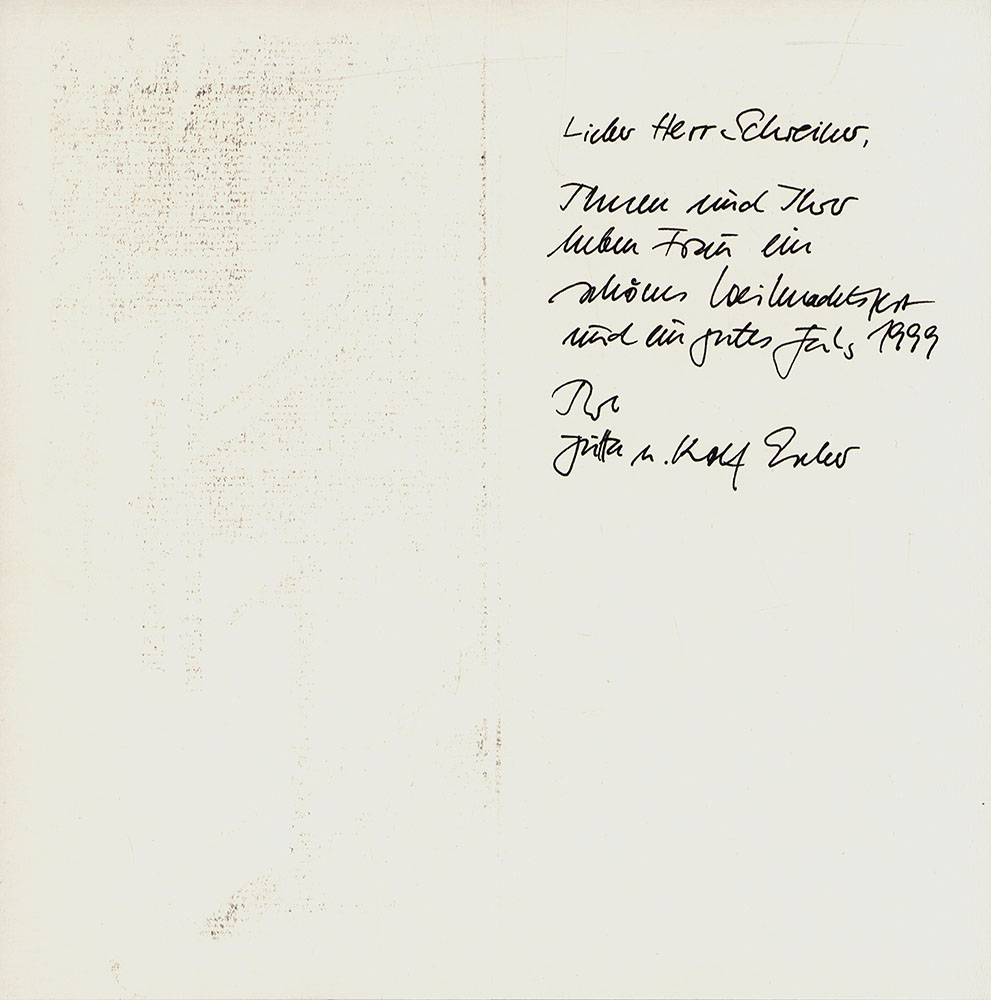 Lieber Herr Schreiber,
Ihnen und Ihrer
lieben Frau ein
schönes Weihnachtsfest
und ein gutes Jahr 1999
Ihre
Jutta u. Rolf